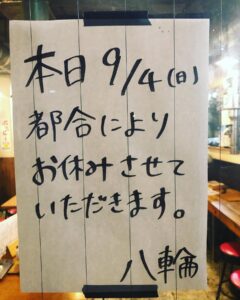 本日9/4(日)
都合により
お休みさせて
いただきます。
八輪